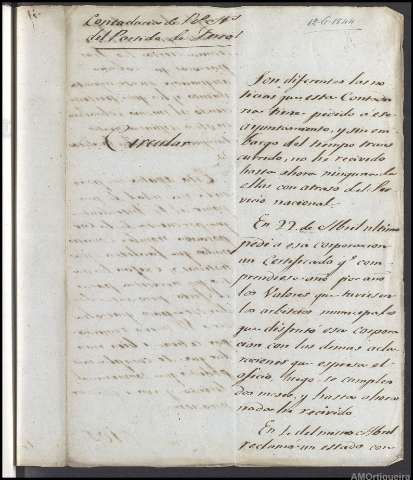 Contaduria de R.s N.s
del Partido de Ferrol
12-6-1844
Circular
Son diferentes las no
ticias que esta Contadu
ria tiene pedido a ese
ayuntamiento, y sin em
bargo del tiempo trans
currido, no he recivido
hasta ahora ninguna de
ellas con atraso del Ser
vicio nacional.
En 22 de Abril ultimo
pedi a esa corporacion
un Certificado q.e com
prendiese año por año
los Valores que tuvieron
los arbitrios municipales
que disfruta esa corpora
cion con las demas acla
raciones que espresa el
oficio, luego se cumplen
dos meses, y hasta ahora
nada he recivido
En 1.o del mismo Abril
reclamé un estado con
AMOrtigueira